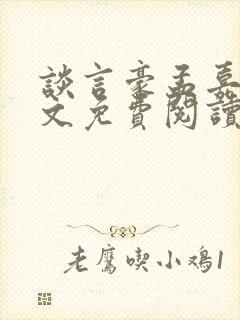 談言豪孟嘉
文免費閱讀
老鷹喫小鸡1